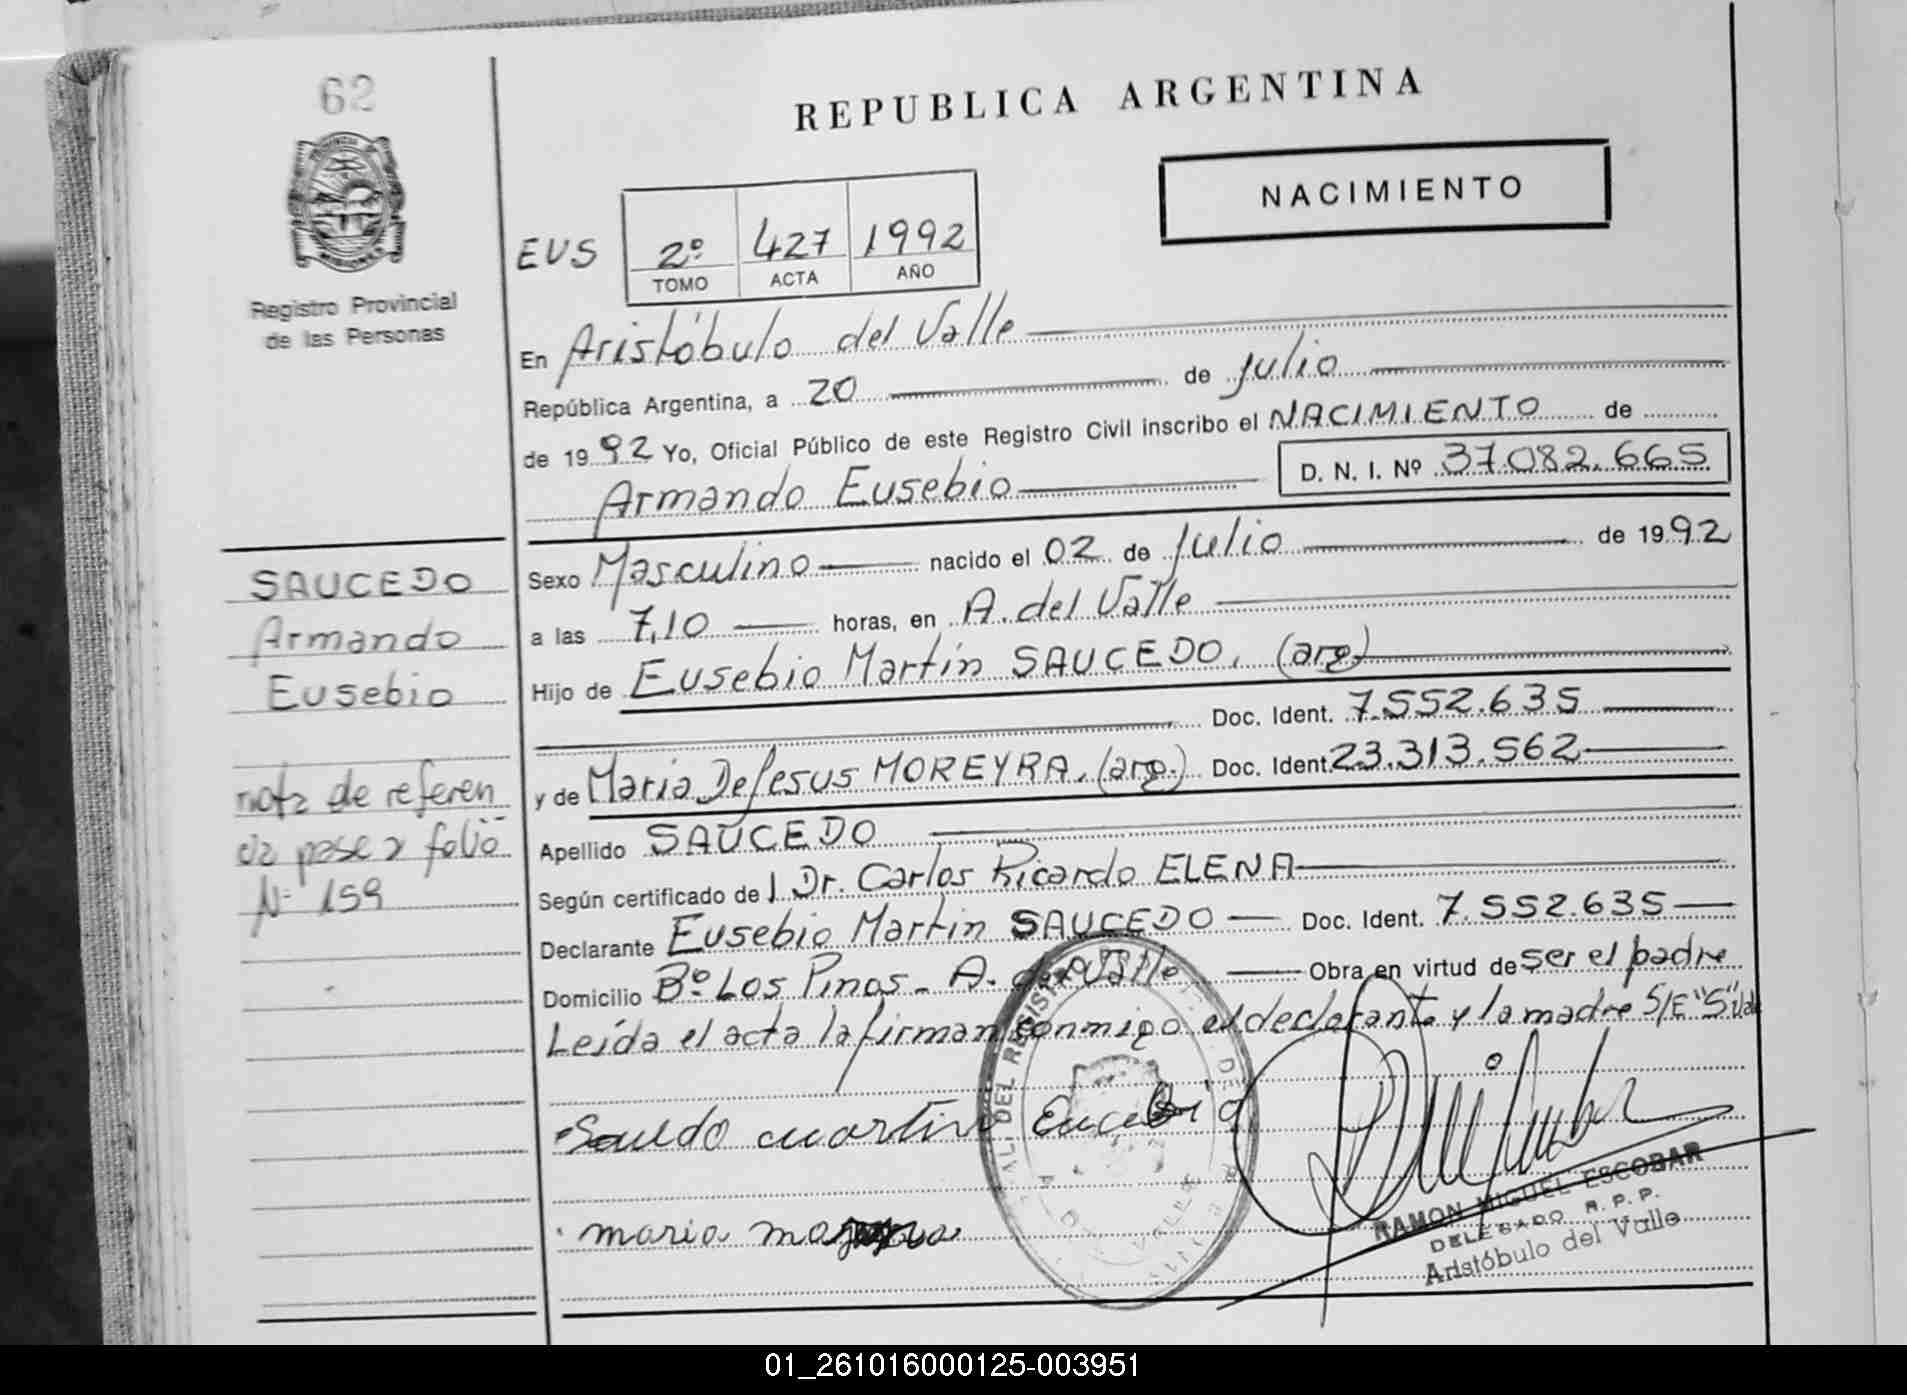 62
Registro Provincial
de las Personas
REPUBLICA ARGENTINA
NACIMIENTO
EUS
2º 427 1992
TOMO ACTA AÑO
En Aristóbulo del Valle
República Argentina, a 20 de Julio
de 1992 Yo, Oficial Público de este Registro Civil inscribo el NACIMIENTO de
Armando Eusebio D. N. I. Nº 37.082.665
Sexo Masculino nacido el 02 de Julio de 1992
a las 7,10 horas, en A. del Valle
Hijo de Eusebio Martín SAUCEDO. (arg.)
Doc. Ident. 7.552.635
y de Maria De Jesus MOREYRA. (arg.) Doc. Ident. 23.313.562
Apellido SAUCEDO
Según certificado de Dr. Carlos Ricardo ELENA
Declarante Eusebio Martin SAUCEDO Doc. Ident. 7.552.635
Domicilio Bº Los Pinos - A. del Valle Obra en virtud de ser el padre
Leída el acta la firman conmigo el declarante y la madre S/E
SAUCEDO
Armando
Eusebio
nota de referen
cia pase a folio
Nº 159
maria
RAMON MIGUEL ESCOBAR
DELEGADO R. P. P.
Aristóbulo del Valle
01_261016000125-003951